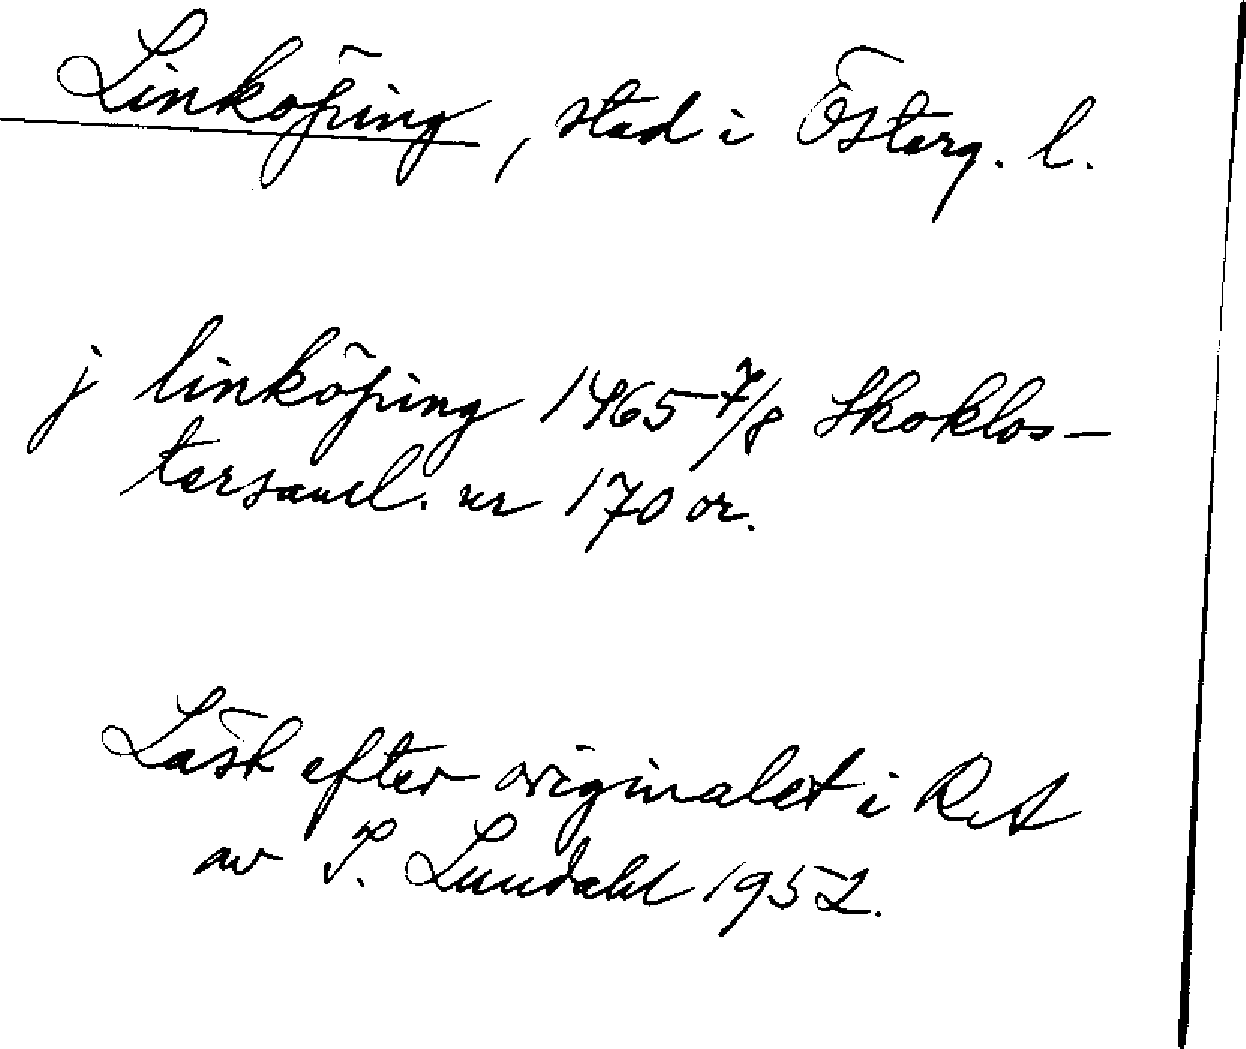 Linköping, stad i Österg. l.
j linköping 1465 7/8 Skoklos-
tersaml. nr 170 or.
Läst efter originalet i RA
av I. Lundahl 1952.